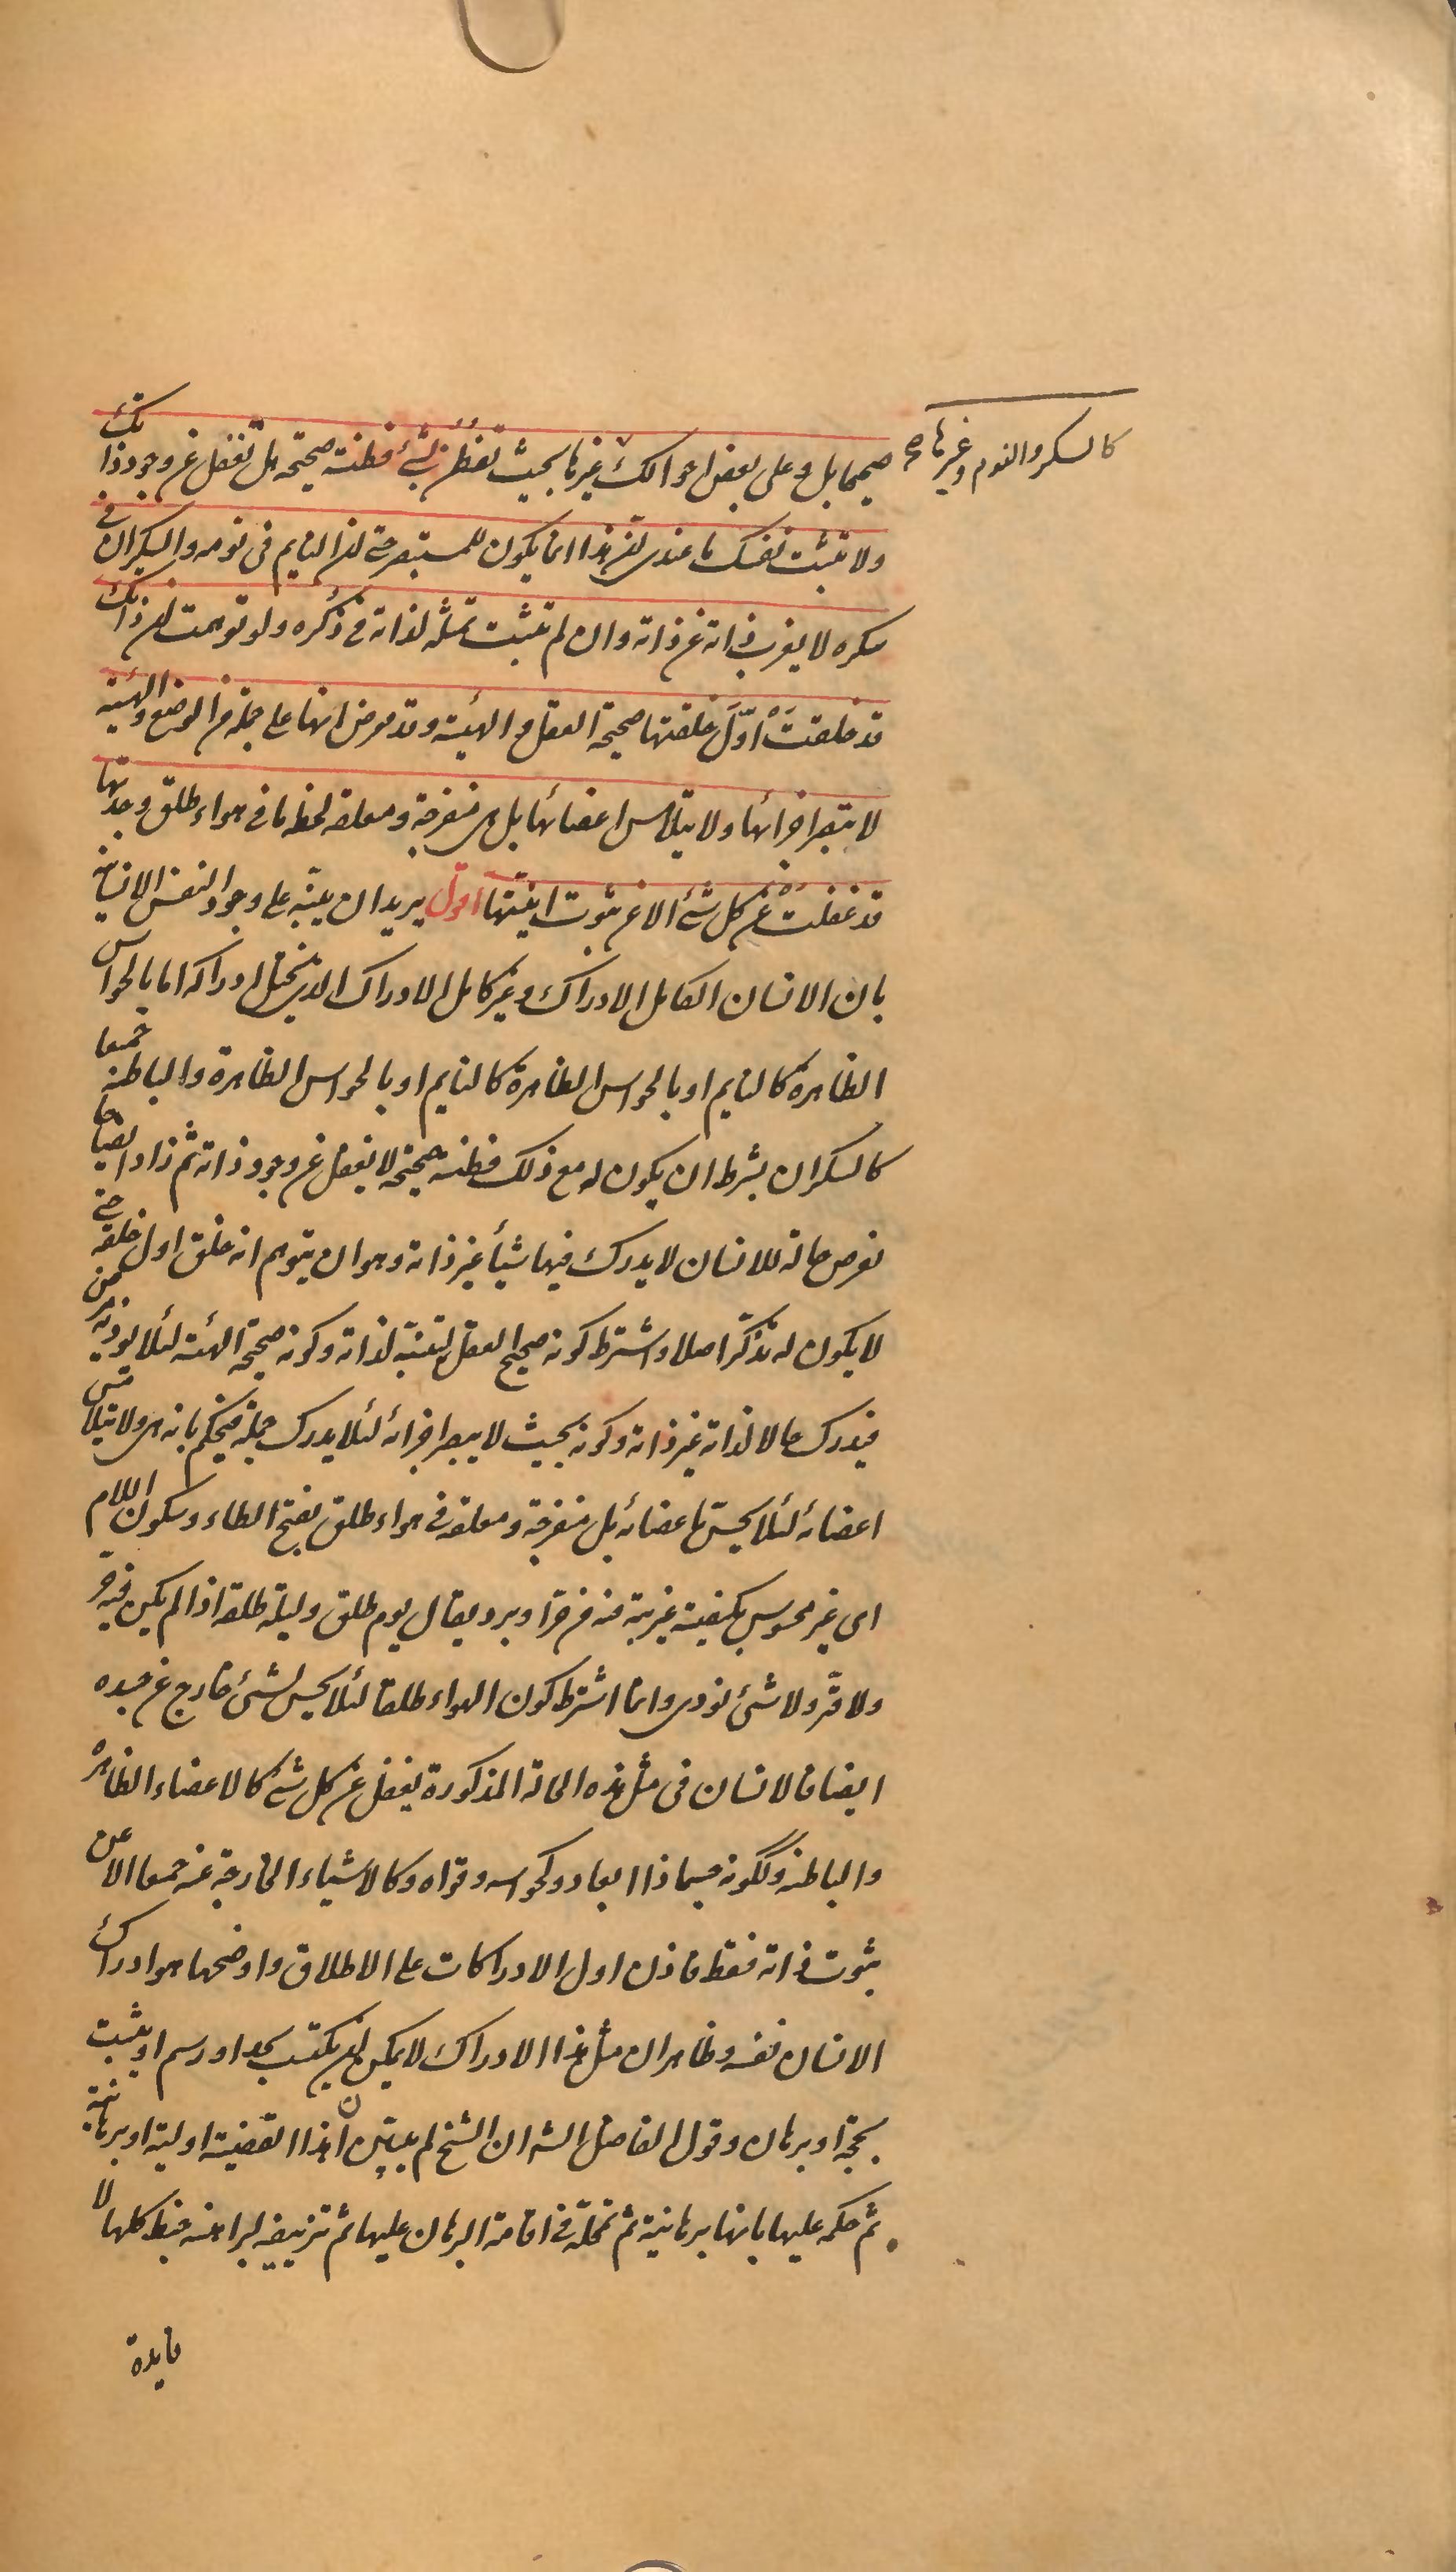 كالسكر والنوم وغيرها صح
صحيحا بل وعلى بعض احوالك غيرها بحيث تفطن بشئ فطنة صحيحة هل تغفل عن وجود ذاتك
ولا تثبت نفسك ما عندى لن هذا انما يكون للمستبصر حتى لن النايم فى نومه والسكران فى
سكره لا يغرب ذاته عن ذاته وان لم تثبت تمثله لذاته فى ذكره ولو توهمت لن ذاتك
قد خلقت اوّل خلقتها صحيحة العقل والهيئة وقد فرض انها على جملة من الوضع والهيئة
لا تبصر اجزائها ولا يتلامس اعضائها بل هى منفرجة ومعلقة لحظة ما فى هواء طلق وجدتها
قد غفلت عن كل شئ الا عن ثبوت انيتها اقول يريد ان ينبّه على وجود النفس الانسانية
بان الانسان الكامل الادراك وغير كامل الادراك الذى يختل ادراكه اما بالحواس
الظاهرة كالنايم او بالحواس الظاهرة كالنايم او بالحواس الظاهرة والباطنة جميعا
كالسكران بشرط ان يكون له مع ذلك فطنة صحيحة لا يغفل عن وجود ذاته ثم زاد ايضاحا
بفرض حالة للانسان لا يدرك فيها شيأ غير ذاته وهو ان يتوهم انه خلق اول خلقه حتى
لا يكون له تذكّر اصلا واشترط كونه صحيح العقل لتنبه لذاته وكونه صحيحة الهئة لئلا يوذيه مرض
فيدرك حالا لذاته غير ذاته وكونه بحيث لا يبصر اجزائه لئلا يدرك جملة فيحكم بانه هى ولا يتلامس
اعضائه لئلا يحسّ باعضائه بل منفرجة ومعلقة فى هواء طلق بفتح الطاء وسكون اللام
اى غير محسوس بكيفية غريبة منه من حرّ او برد يقال يوم طلق وليلة طلقة اذا لم يكن فيه حرّ
ولا قرّ ولا شئ يوذى وانما اشترط كون الهواء طلقا لئلا يحس بشئ خارج عن جسده
ايضا فالانسان فى مثل هذه الحالة المذكورة يغفل عن كل شئ كالاعضاء الظاهرة
والباطنة وككونه جسما ذا ابعاد وكحواسه وقواه وكالاشياء الخارجة عنه جميعا الا عن
ثبوت ذاته فقط فاذن اول الادراكات على الاطلاق واوضحها هو ادراك
الانسان نفسه وظاهر ان مثل هذا الادراك لا يمكن لن يكتسب بحد او رسم او يثبت
بحجة او برهان وقول الفاضل الشه ان الشيخ لم يبيّن ان هذا القضية اولية او برهانية
ثم حكمه عليها بانها برهانية ثم تمحّله فى اقامة البرهان عليها ثم تزييفه لبراهينه خبط كلها لا
فايدة